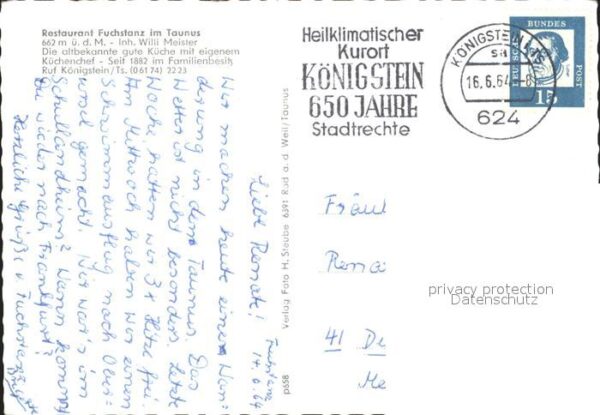 Restaurant Fuchstanz im Taunus
662 m ü. d. M. - Inh. Willi Meister
Die altbekannte gute Küche mit eigenem
Küchenchef - Seit 1882 im Familienbesitz
Ruf Königstein/Ts. (06174) 2223
Heilklimatischer
Kurort
KÖNIGSTEIN
650 JAHRE
Stadtrechte
KÖNIGSTEIN
16.6.64
624
DEUTSCHE
BUNDES
POST
15
Fuchstanz
14.6.64
Liebe Renate!
Wir machen heute eine Wan-
derung in den Taunus. Das
Wetter ist nicht besonders. Letzte
Woche hatten wir 3x Hitzefrei.
Am Mittwoch haben wir einen
Schwimmausflug nach Ober-
ursel gemacht. Wie war's im
Schullandheim? Wann kommst
Du wieder nach Frankfurt?
Herzliche Grüße v. Fuchstanz
Verlag Foto H. Steube 6391 Rod a. d. Weil/Taunus
p658
Fräul
Rena
41 De
Me
privacy protection
Datenschutz